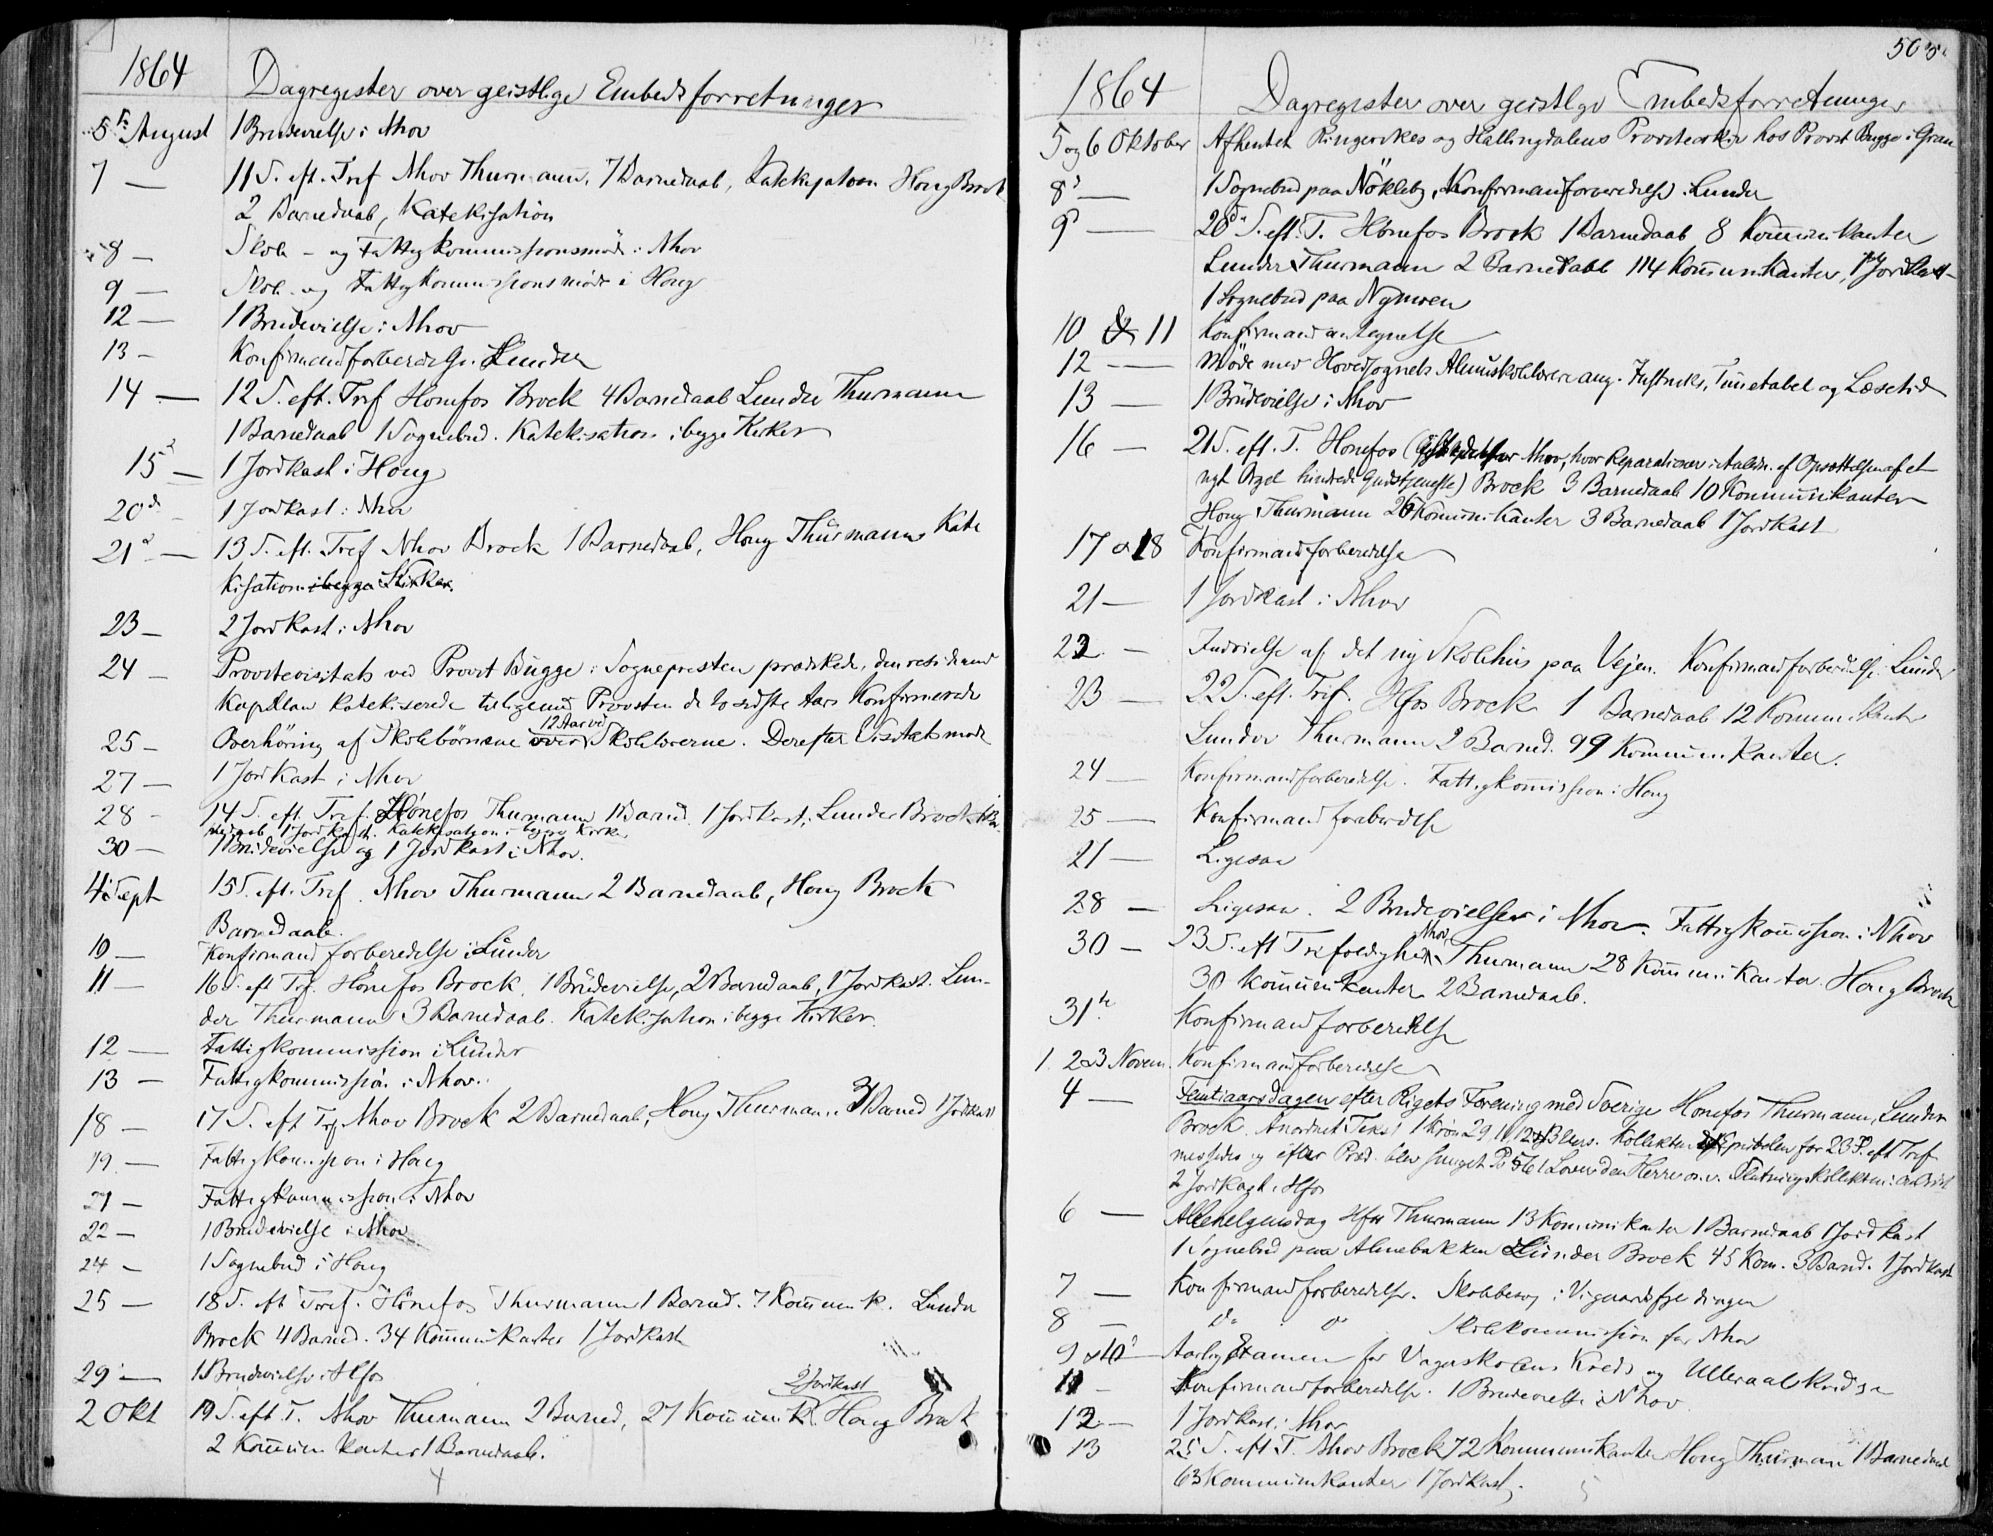 1864
Dagregister over geistlige Embedsforretninger
5te August 1 Brudevielse i Nhov
7 — 11 S. eft. Tref Nhov Thurmann, 7 Barnedaab, Katekisation Houg Brock
2 Barnedaab, Katekisation
8 — Skole- og Fattigkommissionsmöde i Nhov
9 — Skole- og Fattigkommissionsmöde i Houg
12 — 1 Brudevielse i Nhov
13 — Konfirmandforberedelse. Lunder
14 — 12 S. eft. Tref Hönefos Brock 4 Barnedaab Lunder Thurmann
1 Barnedaab 1 Sognebud. Katekisation i begge Kirker
15 — 1 Jordkast i Houg
20de — 1 Jordkast i Nhov
21 — 13 S. eft. Tref Nhov Brock 1 Barnedaab, Houg Thurmann Kate
kisation i begge Kirker.
23 — 2 Jordkast i Nhov
24 — Provstevisitats ved Provst Bugge: Sognepresten prædikede, den residerend
Kapellan katekiserede tilligemed Provsten de to sidste Aars Konfirmerede
25 — Overhöring af Skolebörnene over 12 Aar ved Skolelærerne. Derefter Visitatsmöde
27 — 1 Jordkast i Nhov
28 — 14 S. eft. Tref. Hönefos Thurmann 1 Barned. 1 Jordkast, Lunder Brock 1 Bar
nedaab 1 Jordkast. Katekisation i begge Kirker
30 — 1 Brudevielse og 1 Jordkast i Nhov.
4 Sept 15 S. eft. Tref. Nhov Thurmann 2 Barnedaab, Houg Brock
Barnedaab.
10 — Konfirmandforberedelse i Lunder
11 — 16 S. eft Tref. Hönefos Brock. 1 Brudevielse, 2 Barnedaab, 1 Jordkast. Lun-
der Thurmann 3 Barnedaab. Katekisation i begge Kirker.
12 — Fattigkommission i Lunder
13 — Fattigkommission i Nhov.
18 — 17 S. eft Tref Nhov Brock 2 Barnedaab, Houg Thurmann 3 Barned 1 Jordkast
19 — Fattigkommission i Houg
21 — Fattigkommission i Nhov
22 — 1 Brudevielse i Nhov
24 — 1 Sognebud i Houg
25 — 18 S. eft Tref. Hönefos Thurmann 1 Barned. 7 Kommunik. Lunder
Brock 4 Barned. 34 Kommunikanter 1 Jordkast
29 — 1 Brudevielse i Hfos
2 Jordkast
2 Okt 19 S. eft T. Nhov Thurmann 2 Barned, 27 Kommunik. Houg Brock
2 Kommunikanter 1 Barnedaab.
1864
Dagregister over geistlige Embedsforretninger
5 og 6 Oktober Afhentet Ringerikes og Hallingdalens Provstearkiv hos Provst Bugge i Gran
8 — 1 Sognebud paa Nökleby, Konfirmandforberedelse i Lunder
9 — 20de S. eft. T. Hönefos Brock 1 Barnedaab 8 Kommunikanter
Lunder Thurmann 2 Barnedaab 114 Kommunikanter, 1 Jordkast
1 Sognebud paa Nymoen
10 & 11 Konfirmandantegnelse
12 — Möde med Hovedsognets Almueskolelærere ang. Instruks, Timetabel og Læsetid
13 — 1 Brudevielse i Nhov
16 — 21 S. eft. T. Hönefos ( Nhov, hvor Reparationer i Anledn. af Opsættelsen af et
nyt Orgel hindrede Gudstjeneste) Brock 3 Barnedaab 10 Kommunikanter
Houg Thurmann 26 Kommunikanter 3 Barnedaab 1 Jordkast
17 & 18 Konfirmandforberedelse
21 — 1 Jordkast i Nhov
22 — Indvielse af det ny Skolehus paa Vejen. Konfirmandforberedelse Lunder
23 — 22 S. eft. Tref. Hfos Brock 1 Barnedaab 12 Kommunikanter
Lunder Thurmann 2 Barned. 99 Kommunikanter.
24 — Konfirmandforberedelse. Fattigkommission i Houg
25 — Konfirmandforberedelse
21 — Ligesaa
28 — Ligesaa. 2 Brudevielser i Nhov. Fattigkommission i Nhov
30 — 23 S. eft Trefoldighed Nhov Thurmann 28 Kommunikanter Houg Brock
30 Kommunikanter 2 Barnedaab.
31te Konfirmandforberedelse
1. 2 & 3 Novem. Konfirmandforberedelse
4 — Femtiaarsdagen efter Rigets Forening med Sverige Hönefos Thurmann, Lunder
Brock. Anordnet Text 1 Krön 29 11 12 & 13 Vers. Kollekten & Epistelen for 23 S. eft Tref
messedes og efter Præd. blev sunget No 561 Lover den Herre o.s.v. Slutningskollekten:
2 Jordkast i Hfos
6 — Allehelgensdag Hfos Thurmann 13 Kommunikanter 1 Barnedaab 1 Jordkast
1 Sognebud paa Almebakken Lunder Brock 45 Kom. 3 Barnd. 1 Jordkast
7 — Konfirmandforberedelse. Skolebesög i Vigaardsfjerdingen
8 — do do Skolekommission for Nhov
9 & 10 — Aarlig Examen for Vagaskolens Kreds og Ulleraal Kredse
11 — Konfirmandforberedelse. 1 Brudevielse i Nhov
12 — 1 Jordkast i Nhov
13 25 S. eft T. Nhov Brock 72 Kommunikanter Houg Thurmann 1 Barnedaab
63 Kommunikanter 1 Jordkast.